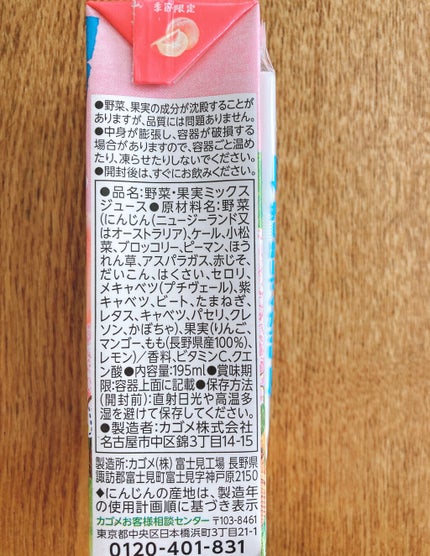 季節限定
●野菜、果実の成分が沈殿することが
ありますが、品質には問題ありません。
●中身が膨張し、容器が破損する
場合がありますので、容器ごと温め
たり、凍らせたりしないでください。
●開封後は、すぐにお飲みください。
●品名:野菜・果実ミックス
ジュース●原材料名:野菜
(にんじん(ニュージーランド又
はオーストラリア)、ケール、小松
菜、ブロッコリー、ピーマン、ほう
れん草、アスパラガス、赤じそ、
だいこん、はくさい、セロリ、
メキャベツ(プチヴェール)、紫
キャベツ、ビート、たまねぎ、
レタス、キャベツ、パセリ、クレ
ソン、かぼちゃ)、果実(りんご、
マンゴー、もも(長野県産100%)、
レモン)/香料、ビタミンC、クエ
ン酸●内容量:195ml●賞味期
限:容器上面に記載●保存方法
(開封前):直射日光や高温多
湿を避けて保存してください。
●製造者:カゴメ株式会社
名古屋市中区錦3丁目14-15
製造所:カゴメ(株)富士見工場 長野県
諏訪郡富士見町富士見字神戸原2150
◆にんじんの産地は、製造年
の使用計画順に基づき表示
カゴメお客様相談センター 〒103-8461
東京都中央区日本橋浜町3丁目21-1
0120-401-831